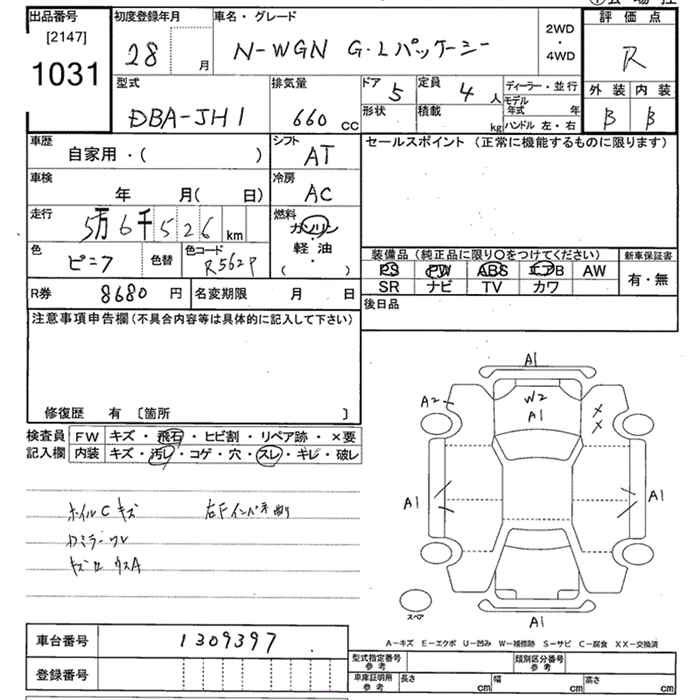 出品番号 初度登録年月 車名・グレード 評価点
[2147] 1031
28 月 N-WGN G・Lパッケージ 2WD・4WD R
型式 排気量 ドア 定員 ディーラー・並行 外装 内装
DBA-JH1 660CC 5 4人 モデル年式 年 B B
形状 積載 kg ハンドル 左・右
車歴 シフト セールスポイント (正常に機能するものに限ります)
自家用・( ) AT
車検 冷房
年 月( 日) AC
走行 燃料
5万6千526km ガソリン
軽油
( ・ )
色 色替 色コード 装備品(純正品に限り○をつけてください) 新車保証書
ピンク R562P PS PW ABS エアB AW 有・無
R券 8680円 名変期限 月 日 SR ナビ TV カワ
後日品
注意事項申告欄(不具合内容等は具体的に記入して下さい)
修復歴 有 [箇所 ]
検査員 FW キズ・飛石・ヒビ割・リペア跡・×要
記入欄 内装 キズ・汚レ・コゲ・穴・スレ・キレ・破レ
ホイルC キズ 右Fインパネ
A1
A2 W2 XX
A1
A1 A1
スペア A1
A-キズ E-エクボ U-凹み W-補修跡 S-サビ C-腐食 XX-交換済
車台番号 1309397
登録番号
型式指定番号参考 類別区分番号参考
車庫証明用参考 長さ cm 幅 cm 高さ cm